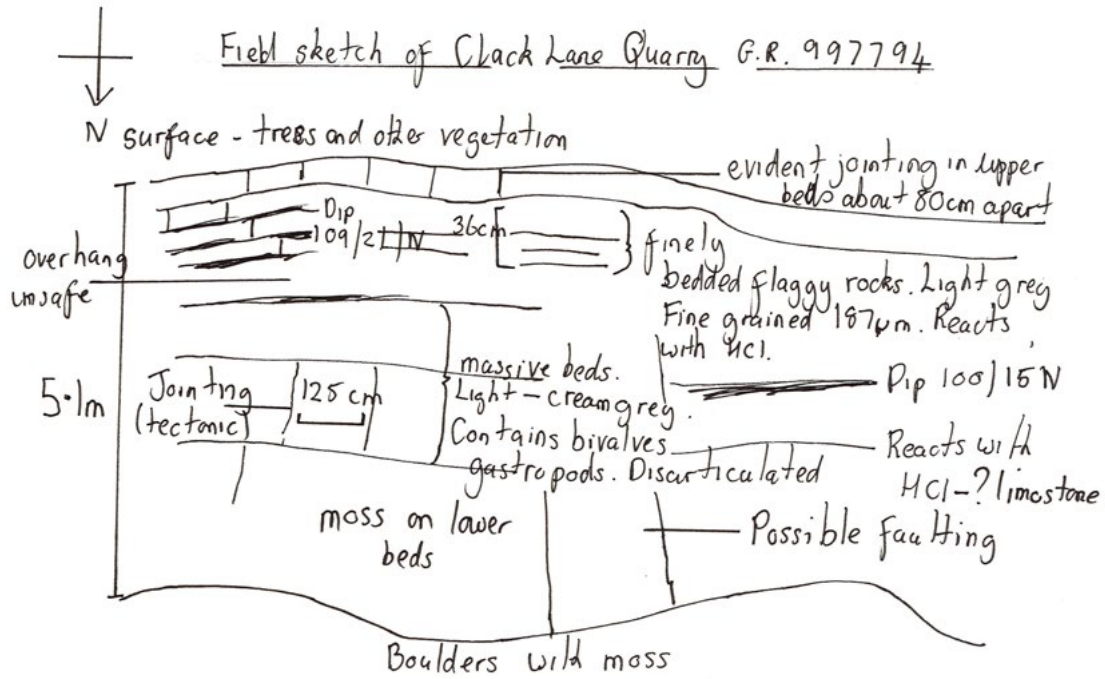 Field sketch of Clack Lane Quarry G.R. 997794
N
surface - trees and other vegetation
evident jointing in upper
beds about 80cm apart
Dip
109/21 N
36cm
finely
bedded flaggy rocks. Light grey
Fine grained 187μm. Reacts
with HCl.
overhang
unsafe
5.1m
Jointing
(tectonic)
125 cm
massive beds.
Light-cream grey.
Contains bivalves
gastropods. Disarticulated
Dip 100/15N
Reacts with
HCl-?limestone
moss on lower
beds
Possible faulting
Boulders with moss